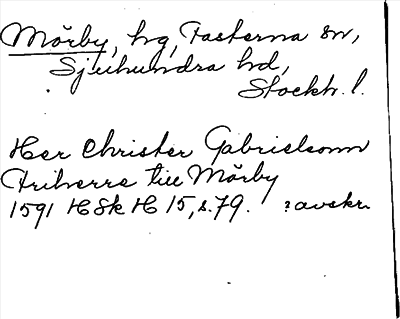 Mörby, hg, Fasterna sn,
Sjuhundra hd,
Stockh. l.
Her Christer Gabrielsonn
Friherre till Mörby
1591 HSk H 15, s. 79. ? avskr.